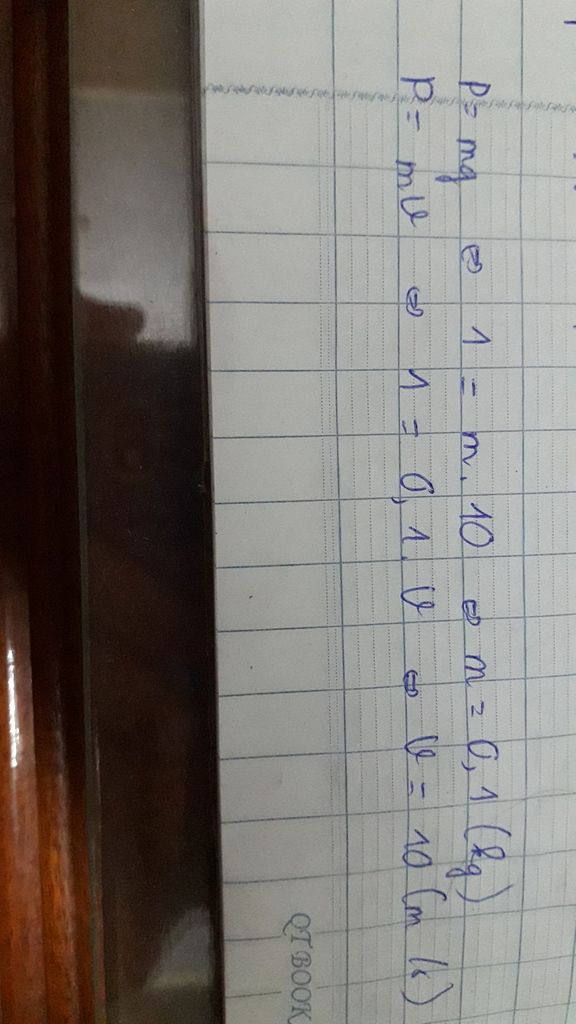 P = mg ⇔ 1 = m. 10 ⇔ m = 0,1 (kg)
p = mv ⇔ 1 = 0,1. v ⇔ v = 10 (m/s)
QT BOOK